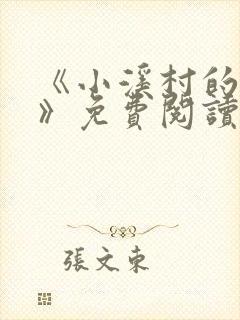 《小溪村的
》免費閱讀
張文東